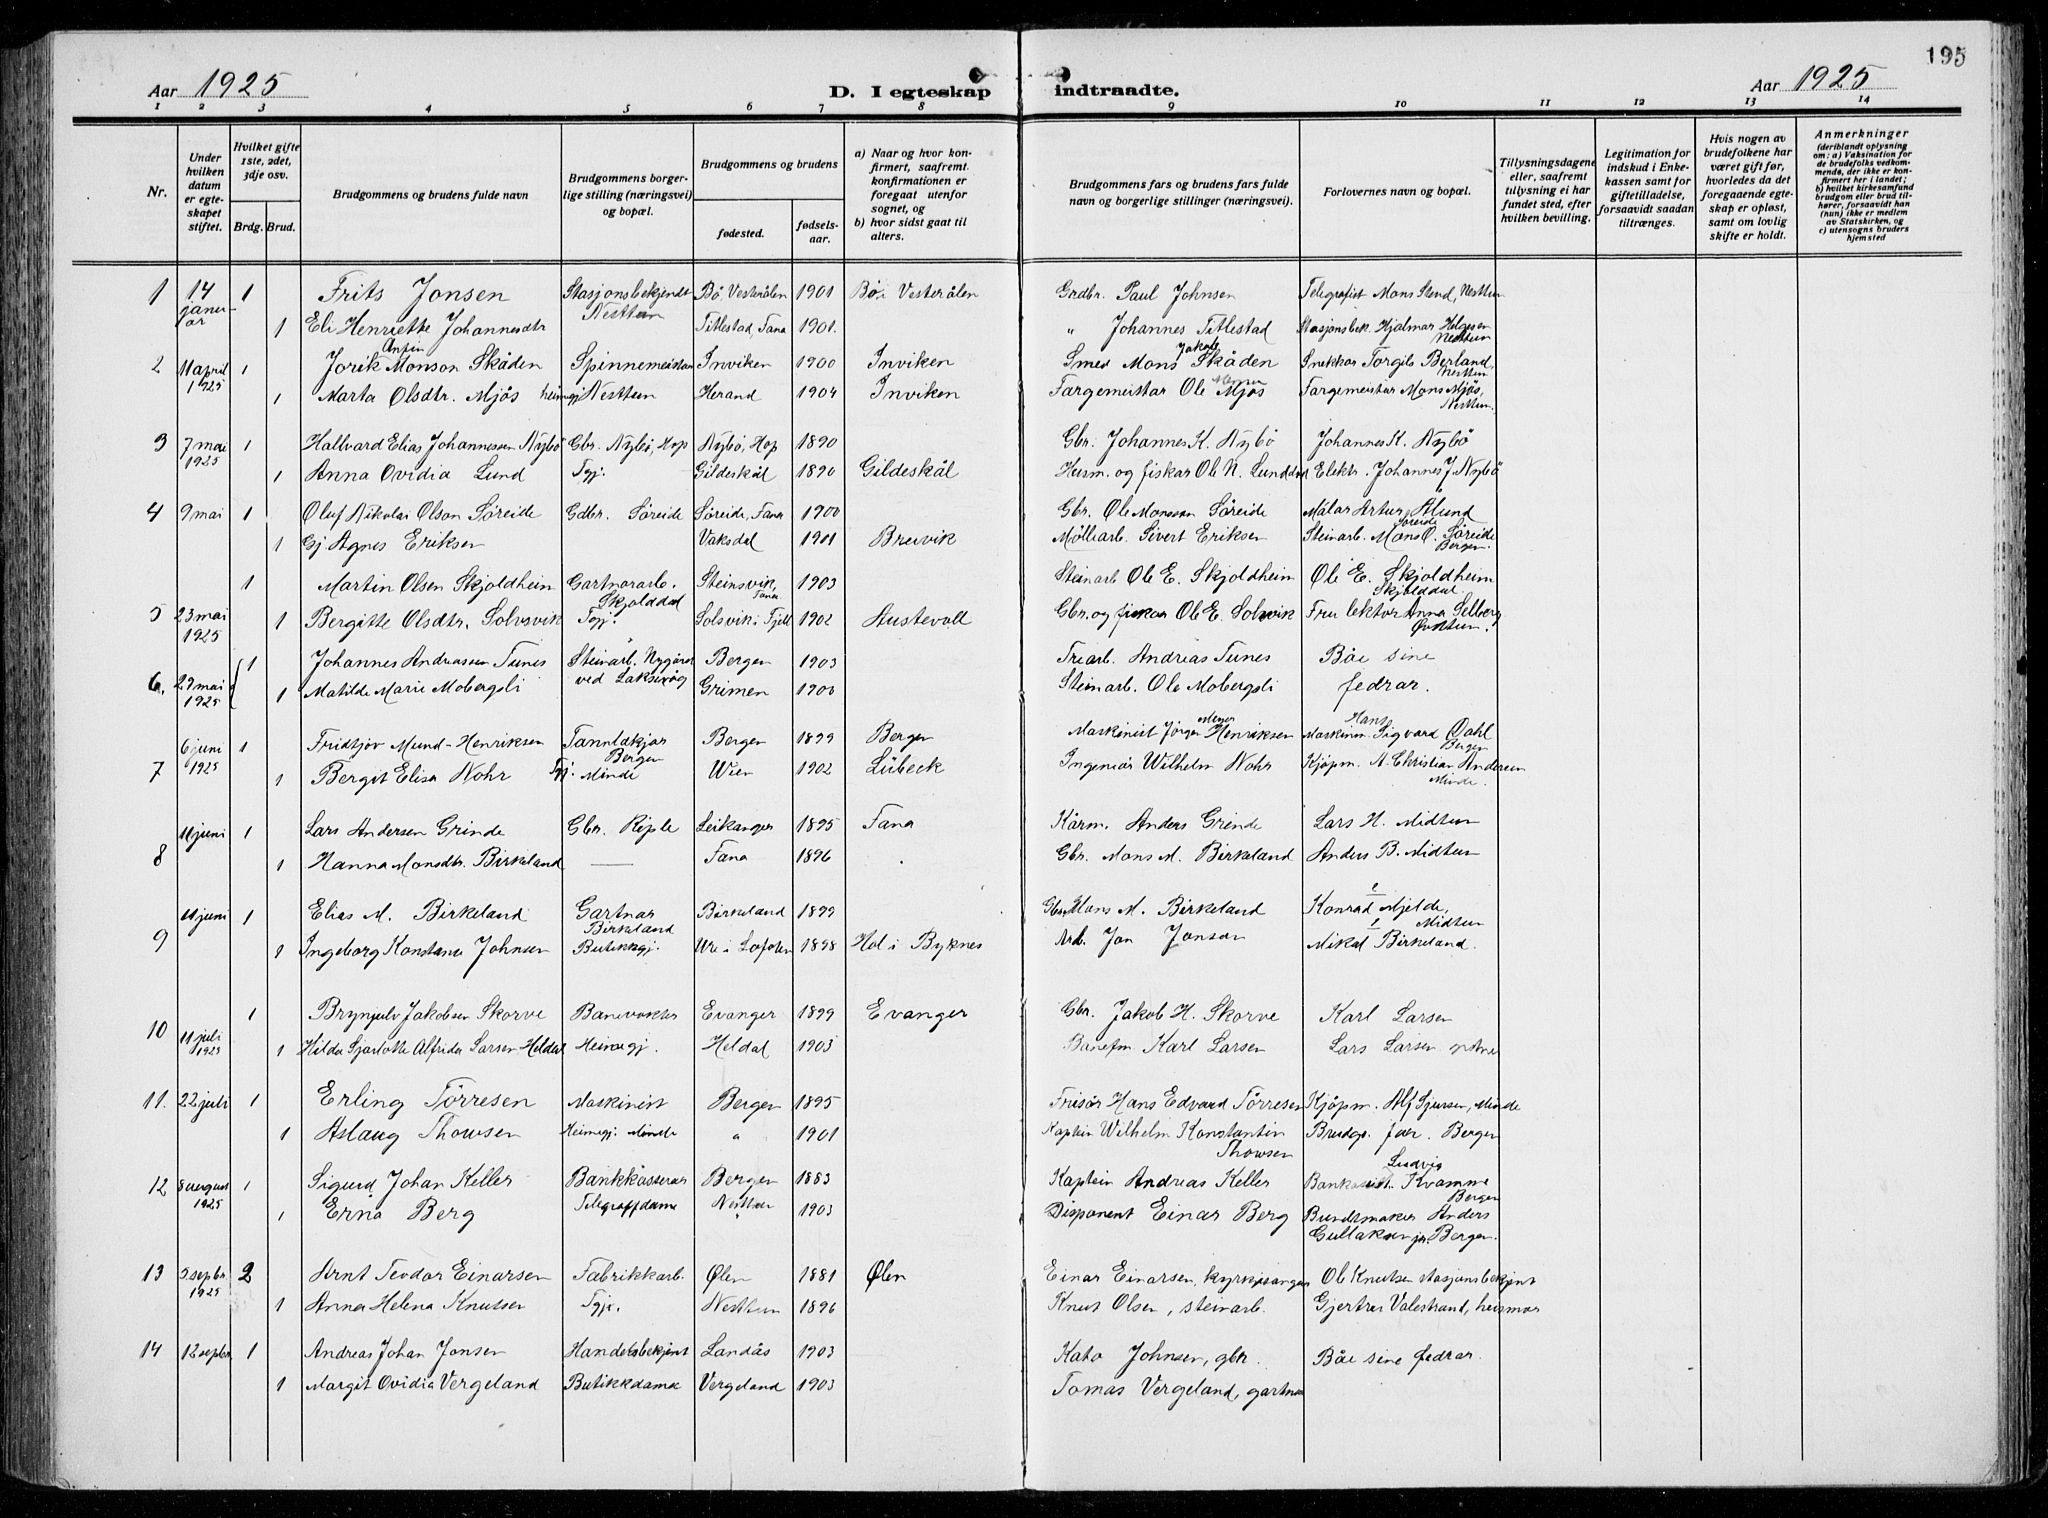 195
Aar 1925
D. I egteskap indtraadte.
Aar 1925
1 2 3 4 5 6 7 8 9 10 11 12 13 14
Nr.
Under hvilken datum er egteskapet stiftet.
Hvilket gifte 1ste, 2det, 3dje osv.
Brdg. Brud.
Brudgommens og brudens fulde navn
Brudgommens borgerlige stilling (næringsvei) og bopæl.
Brudgommens og brudens
fødested.
fødselsaar.
a) Naar og hvor konfirmert, saafremt konfirmationen er foregaat utenfor sognet, og b) hvor sidst gaat til alters.
Brudgommens fars og brudens fars fulde navn og borgerlige stillinger (næringsvei).
Forlovernes navn og bopæl.
Tillysningsdagene eller, saafremt tillysning ei har fundet sted, efter hvilken bevilling.
Legitimation for indskud i Enkekassen samt for giftetilladelse, forsaavidt saadan tiltrænges.
Hvis nogen av brudefolkene har været gift før, hvorledes da det foregaaende egteskap er opløst, samt om lovlig skifte er holdt.
Anmerkninger (deriblandt oplysning om: a) Vaksination for de brudefolks vedkommende, der ikke er konfirmert her i landet; b) hvilket kirkesamfund brudgom eller brud tilhører, forsaavidt han (hun) ikke er medlem av Statskirken, og c) utensogns bruders hjemsted
1 14 januar 1 Frits Jonsen Stasjonsbekjendt Nesttun Bö Vesterålen 1901 Bö i Vesterålen Grdbr. Paul Johnsen Telegrafist Mons Stend, Nesttun
1 Eli Henriette Johannesdtr Titlestad, Fana 1901. " Johannes Titlestad Stasjonsbek. Hjalmar Helgesen Nesttun
2 11 april 1925 1 Jorik Monson Skåden Spinnemeistar Inviken 1900 Inviken Smed Mons Jakob Skåden Snekkar Torgils Berland, Nesttun
1 Marta Olsdtr. Mjös heimgj Nesttun Herand 1904 Inviken Fargemeistar Ole Mjös Fargemeistar Mons Mjös, Nesttun.
3 7 mai 1925 1 Hallvard Elias Johannessen Nybö Gbr. Nybö, Hop Nybö, Hop 1890 Gbr. Johannes K. Nybö Johannes K. Nybö
1 Anna Ovidia Lund Tgj. Gildeskål 1890 Gildeskål Husm. og fiskar Ole N. Lund Elektr. Johannes J Nybö
4 9 mai 1 Oluf Nikolai Olson Söreide Gdbr. Söreide Söreide, Fana 1900 Gbr. Ole Monsson Söreide Målar Artur Ålund Söreide
1 Gj Agnes Eriksen Vaksdal 1901 Breivik Möllearb. Sivert Eriksen Steinarb. Mons O. Söreide Bergen.
1 Martin Olsen Skjoldheim Gartnararb. Skjolddal Steinsvik, Fana 1903 Steinarb Ole E. Skjoldheim Ole E. Skjoldheim Skjolddal
5 23 mai 1925 1 Bergitte Olsdtr. Solvsvik Tgj. Solsvik i Fjell 1902 Austevoll Gbr. og fiskar Ole E. Solsvik Fru lektor Anna Selberg Övsttun.
6. 29 mai 1925 1 Johannes Andreassen Tunes Steinarb. Nygård ved Laksevåg Bergen 1903 Trearb. Andreas Tunes Båe sine
1 Matilde Marie Mobergsli Grimen 1900 Steinarb. Ole Mobergsli fedrar.
7 6 juni 1925 1 Fridtjov Mund-Henriksen Tannlækjar Bergen Bergen 1899 Bergen Maskinist Jörgen Meyer Henriksen Maskinm. Hans Sigvard Dahl Bergen
1 Bergit Elisa Nohr Tgj. Minde Wien 1902 Lübeck Ingeniör Wilhelm Nohr Kjöpm. A. Christian Andersen Minde.
8 11 juni 1 Lars Andersen Grinde Gbr. Riple Leikanger 1895 Fana Kårm. Anders Grinde Lars H. Midtun
1 Hanna Monsdtr. Birkeland — Fana 1896 Gbr. Mons M. Birkeland Anders B. Midtun
9 11 juni 1 Elias M. Birkeland Gartnar Birkeland Birkeland 1899 Gbr Mons M. Birkeland Konrad Mjelde, Midtun
1 Ingeborg Konstanse Johnsen Butikkgj. Ure i Lofoten 1898 Hol i Byknes Arb. Jon Jonson Mikal Birkeland.
10 11 juli 1925 1 Brynjulv Jakobsen Skorve Banevokter Evanger 1899 Evanger Gbr. Jakob H. Skorve Karl Larsen
1 Hilda Sjarlotte Alfrida Larsen Heldal Heimegj. Heldal 1903 Banefm Karl Larsen Lars Larsen
11. 22 juli 1 Erling Törresen Maskinist Bergen 1895 Frisör Hans Edvard Törresen Kjöpm. Alf Sjursen, Minde
1 Aslaug Thowsen Heimegj. Minde " 1901 Kaptein Wilhelm Konstantin Thowsen Brudgs. far. Bergen
12 8 august 1925 1 Sigurd Johan Keller Bankkasserar Bergen 1883 Kaptein Andreas Keller Ludvig Kvamme Bergen
1 Erna Berg Telegrafdame Nesttun 1903 Disponent Einar Berg Buntmaker Anders Gullaksen jr. Bergen.
13 5 sepbr. 1925 2 Arnt Teodor Einarsen Fabrikkarb. Ølen 1881 Ølen Einar Einarsen, kyrkjesangar Ole Knutsen stasjonsbekjent
1 Anna Helena Knutsen Tgj. Nesttun 1896 Knut Olsen, steinarb. Gjertru Valestrand, husmor
14 12 sepbr. 1 Andreas Johan Jonsen Handelsbekjent Landås 1903 Kato Johnsen, gbr. Båe sine fedrar.
1 Margit Ovidia Vergeland Butikkdama Vergeland 1903 Tomas Vergeland, gartnar